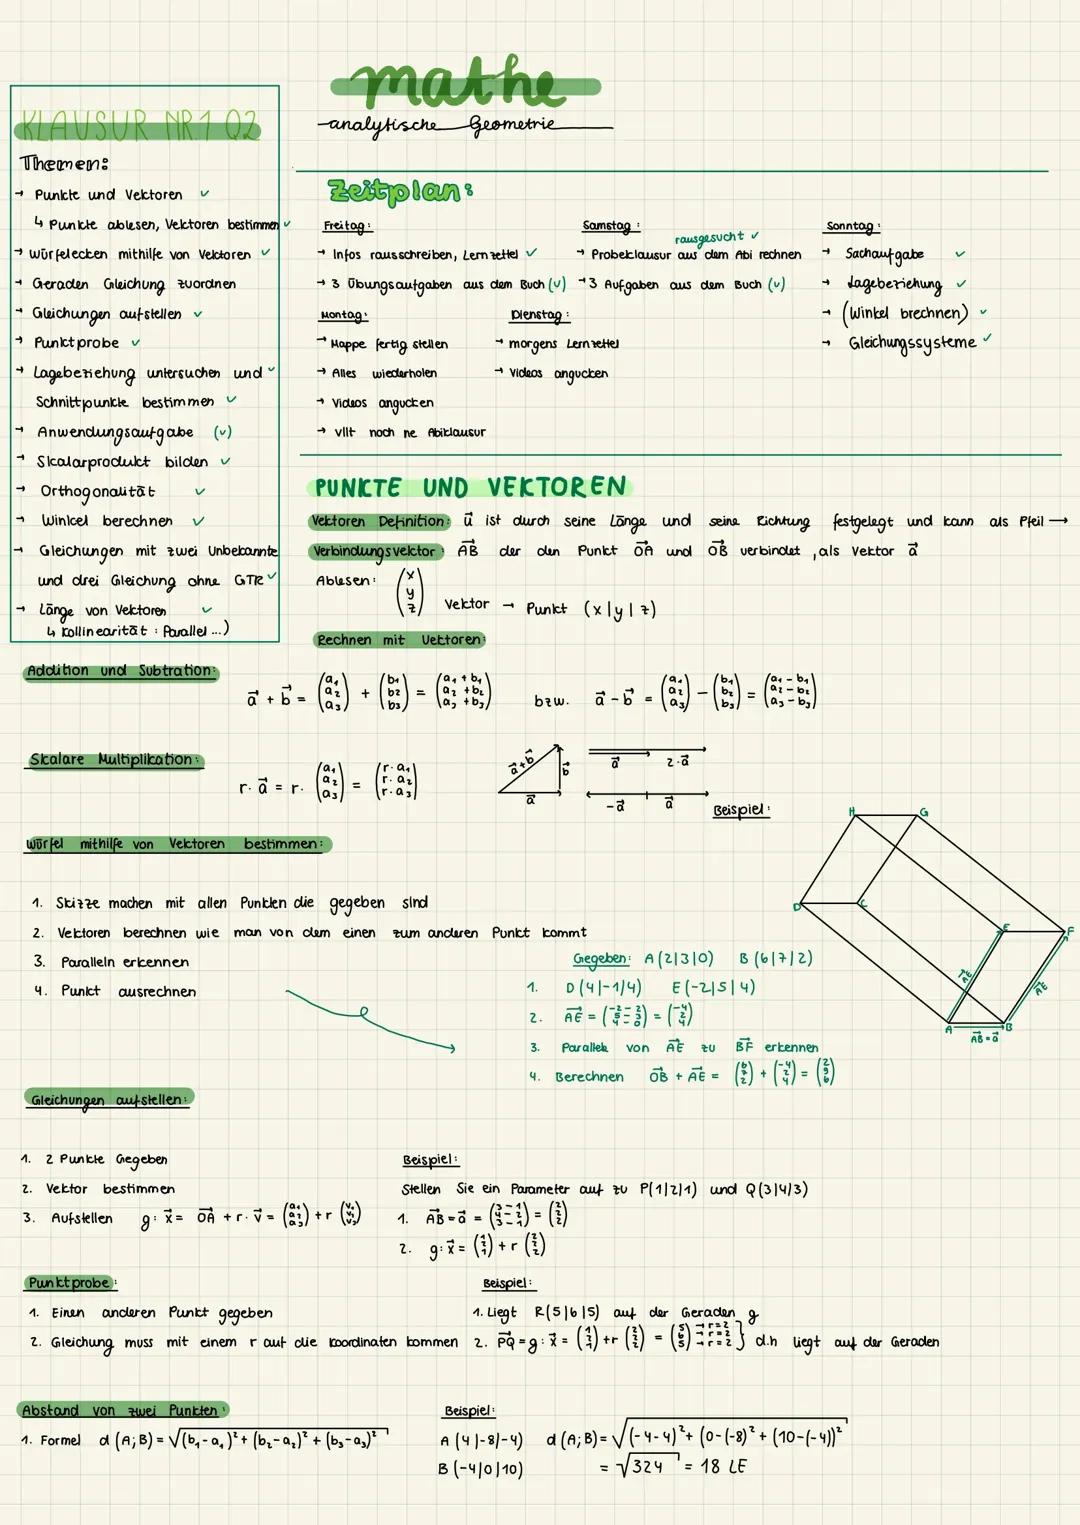 mathe
analytische Geometrie
KLAUSUR NR 1 Q2
Themen:
→ Punkte und Vektoren ✓
↳ Punkte ablesen, Vektoren bestimmen ✓
→ Würfelecken mithilfe von Vektoren ✓
→ Geraden Gleichung zuordnen
→ Gleichungen aufstellen ✓
→ Punktprobe ✓
→ Lagebeziehung untersuchen und ✓
Schnittpunkte bestimmen ✓
→ Anwendungsaufgabe (✓)
→ Skalarprodukt bilden ✓
→ Orthogonalität ✓
→ Winkel berechnen ✓
→ Gleichungen mit zwei Unbekannte
und drei Gleichung ohne GTR ✓
→ Länge von Vektoren ✓
↳ Kollinearität : Parallel ...)
Zeitplan:
Freitag:
→ Infos rausschreiben, Lernzettel ✓
→ 3 Übungsaufgaben aus dem Buch (✓)
Samstag:
rausgesucht ✓
→ Probeklausur aus dem Abi rechnen
→ 3 Aufgaben aus dem Buch (✓)
Sonntag:
→ Sachaufgabe ✓
→ Lagebeziehung ✓
→ (Winkel brechnen) ✓
→ Gleichungssysteme ✓
Montag:
→ Mappe fertig stellen
→ Alles wiederholen
→ Videos angucken
→ vllt noch ne Abiklausur
Dienstag:
→ morgens Lernzettel
→ Videos angucken
PUNKTE UND VEKTOREN
Vektoren Definition: u⃗ ist durch seine Länge und seine Richtung festgelegt und kann als Pfeil →
Verbindungsvektor: AB⃗ der den Punkt OA⃗ und OB⃗ verbindet, als Vektor a⃗
Ablesen: (x y z) Vektor → Punkt (x|y|z)
Rechnen mit Vektoren:
Addition und Subtration:
a⃗ + b⃗ = (a₁ a₂ a₃) + (b₁ b₂ b₃) = (a₁+b₁ a₂+b₂ a₃+b₃) bzw. a⃗ - b⃗ = (a₁ a₂ a₃) - (b₁ b₂ b₃) = (a₁-b₁ a₂-b₂ a₃-b₃)
Skalare Multiplikation:
r · a⃗ = r · (a₁ a₂ a₃) = (r·a₁ r·a₂ r·a₃)
a⃗+b⃗ b⃗ a⃗
a⃗ 2·a⃗
-a⃗ a⃗
Beispiel:
H G
D C
E F
AE⃗ AE⃗
A B
AB⃗ = a⃗
Würfel mithilfe von Vektoren bestimmen:
1. Skizze machen mit allen Punkten die gegeben sind
2. Vektoren berechnen wie man von dem einen zum anderen Punkt kommt
3. Paralleln erkennen
4. Punkt ausrechnen
Gegeben: A(2|3|0) B(6|7|2)
1. D(4|-1|4) E(-2|5|4)
2. AE⃗ = (-2-2 5-3 4-0) = (-4 2 4)
3. Parallele von AE⃗ zu BF⃗ erkennen
4. Berechnen OB⃗ + AE⃗ = (6 7 2) + (-4 2 4) = (2 9 6)
Gleichungen aufstellen:
1. 2 Punkte Gegeben
2. Vektor bestimmen
3. Aufstellen g: x⃗ = OA⃗ + r · v⃗ = (a₁ a₂ a₃) + r (v₁ v₂ v₃)
Beispiel:
Stellen Sie ein Parameter auf zu P(1|2|1) und Q(3|4|3)
1. AB⃗ = a⃗ = (3-1 4-2 3-1) = (2 2 2)
2. g: x⃗ = (1 2 1) + r (2 2 2)
Punktprobe:
1. Einen anderen Punkt gegeben
2. Gleichung muss mit einem r auf die Koordinaten kommen
Beispiel:
1. Liegt R(5|6|5) auf der Geraden g
2. PQ⃗ = g: x⃗ = (1 2 1) + r (2 2 2) = (5 6 5) → r=2 → r=2 → r=2 } d.h liegt auf der Geraden
Abstand von zwei Punkten:
1. Formel d(A;B) = √(b₁-a₁)² + (b₂-a₂)² + (b₃-a₃)²
Beispiel:
A(4|-8|-4) d(A;B) = √(-4-4)² + (0-(-8)² + (10-(-4))²
B(-4|0|10) = √324 = 18 LE